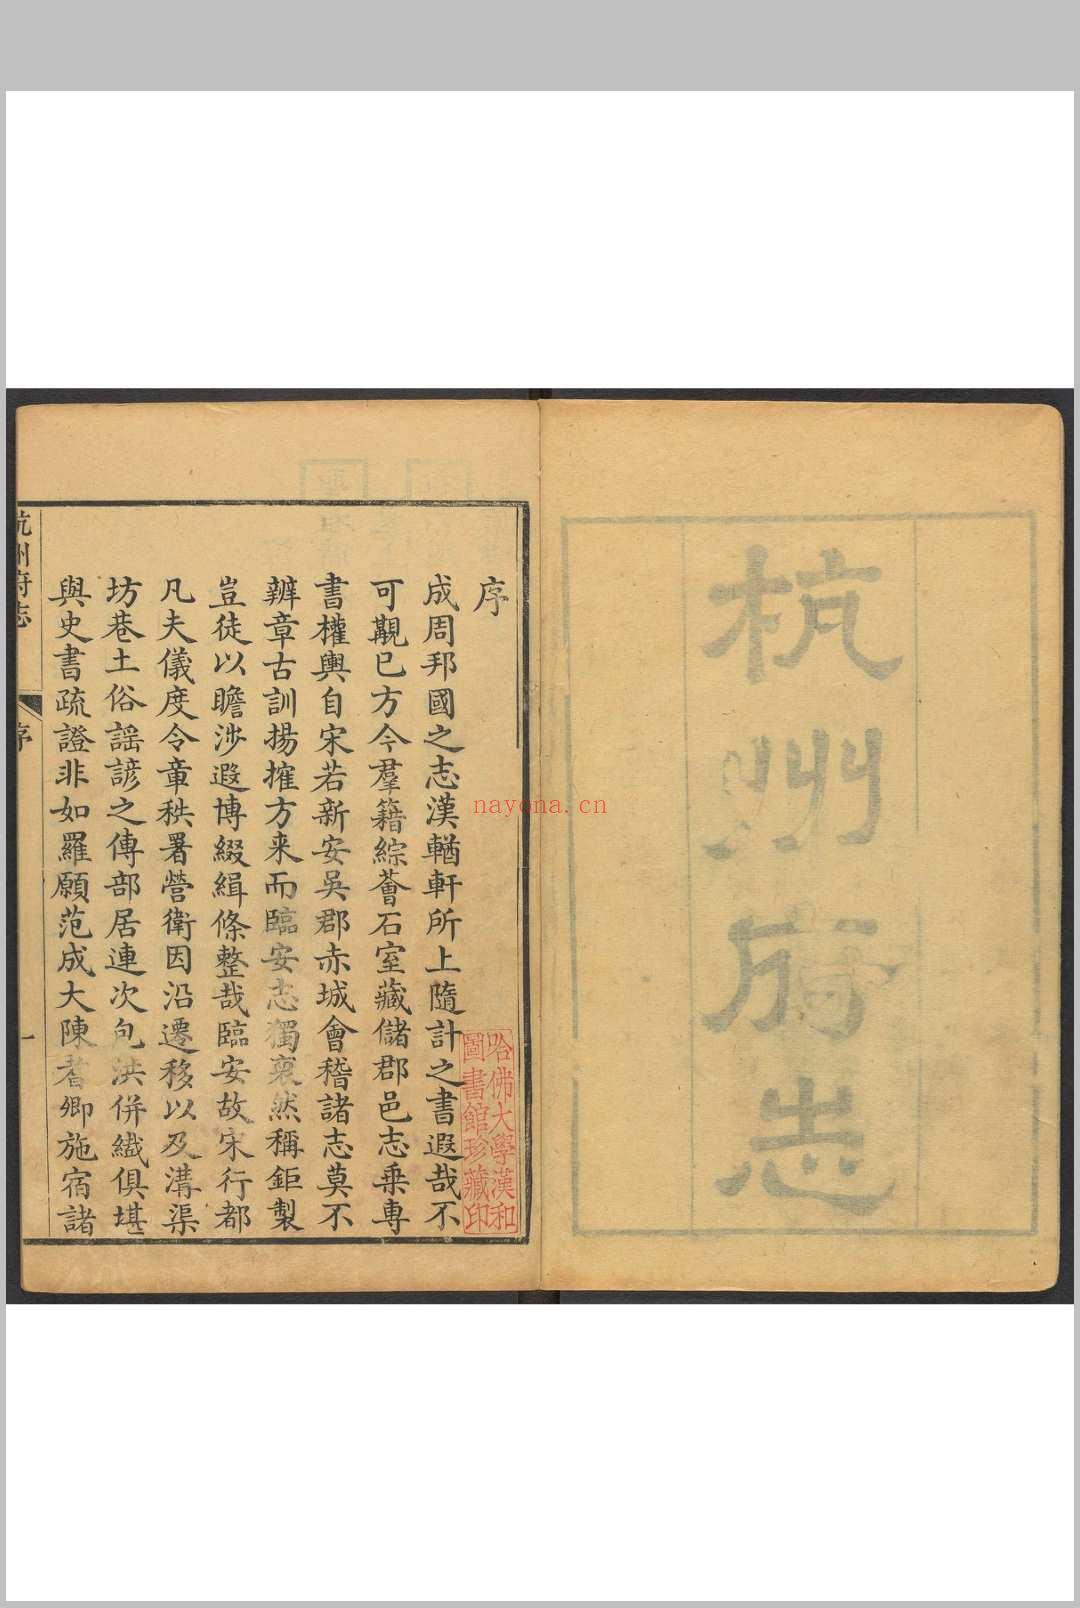 杭州府志
序
成周邦國之志漢輶軒所上隨計之書遐哉不
可覯已方今羣籍綜薈石室藏儲郡邑志乘專
書權輿自宋若新安吳郡赤城會稽諸志莫不
辨章古訓揚搉方来而臨安志獨裒然稱鉅製
豈徒以瞻涉遐博綴緝條整哉臨安故宋行都
凡夫儀度令章秩署營衛因沿遷移以及溝渠
坊巷土俗謡諺之傳部居連次包洪併纎俱堪
與史書疏證非如羅願范成大陳耆卿施宿諸
杭州府志
序
一
哈佛大學漢和
圖書館珍藏印
nayona.cn